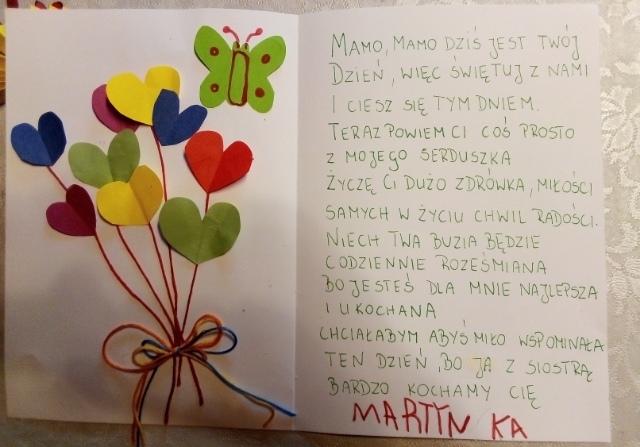 MAMO, MAMO DZIŚ JEST TWÓJ
DZIEŃ, WIĘC ŚWIĘTUJ Z NAMI
I CIESZ SIĘ TYM DNIEM.
TERAZ POWIEM CI COŚ PROSTO
Z MOJEGO SERDUSZKA
ŻYCZĘ CI DUŻO ZDRÓWKA, MIŁOŚCI
SAMYCH W ŻYCIU CHWIL RADOŚCI.
NIECH TWA BUZIA BĘDZIE
CODZIENNIE ROZEŚMIANA
BO JESTEŚ DLA MNIE NAJLEPSZA
I UKOCHANA
CHCIAŁABYM ABYŚ MIŁO WSPOMINAŁA
TEN DZIEŃ, BO JA Z SIOSTRĄ
BARDZO KOCHAMY CIĘ
MARTYNKA